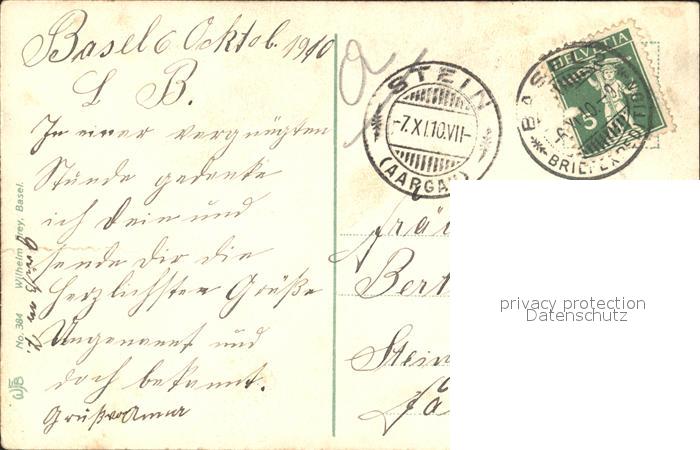 Basel 6 Oktob. 1910
L B.
In einer vergnügten
Stunde gedenke
ich Dein und
sende Dir die
Herzlichsten Grüße
Ungenannt und
doch bekannt.
Gruß von Anna
No. 384 Wilhelm Frey, Basel.
STEIN
-7.XI.10.VII-
(AARGAU)
HELVETIA
5
BAS
BRIEFEXP
Fräu
Bert
Stein
privacy protection
Datenschutz